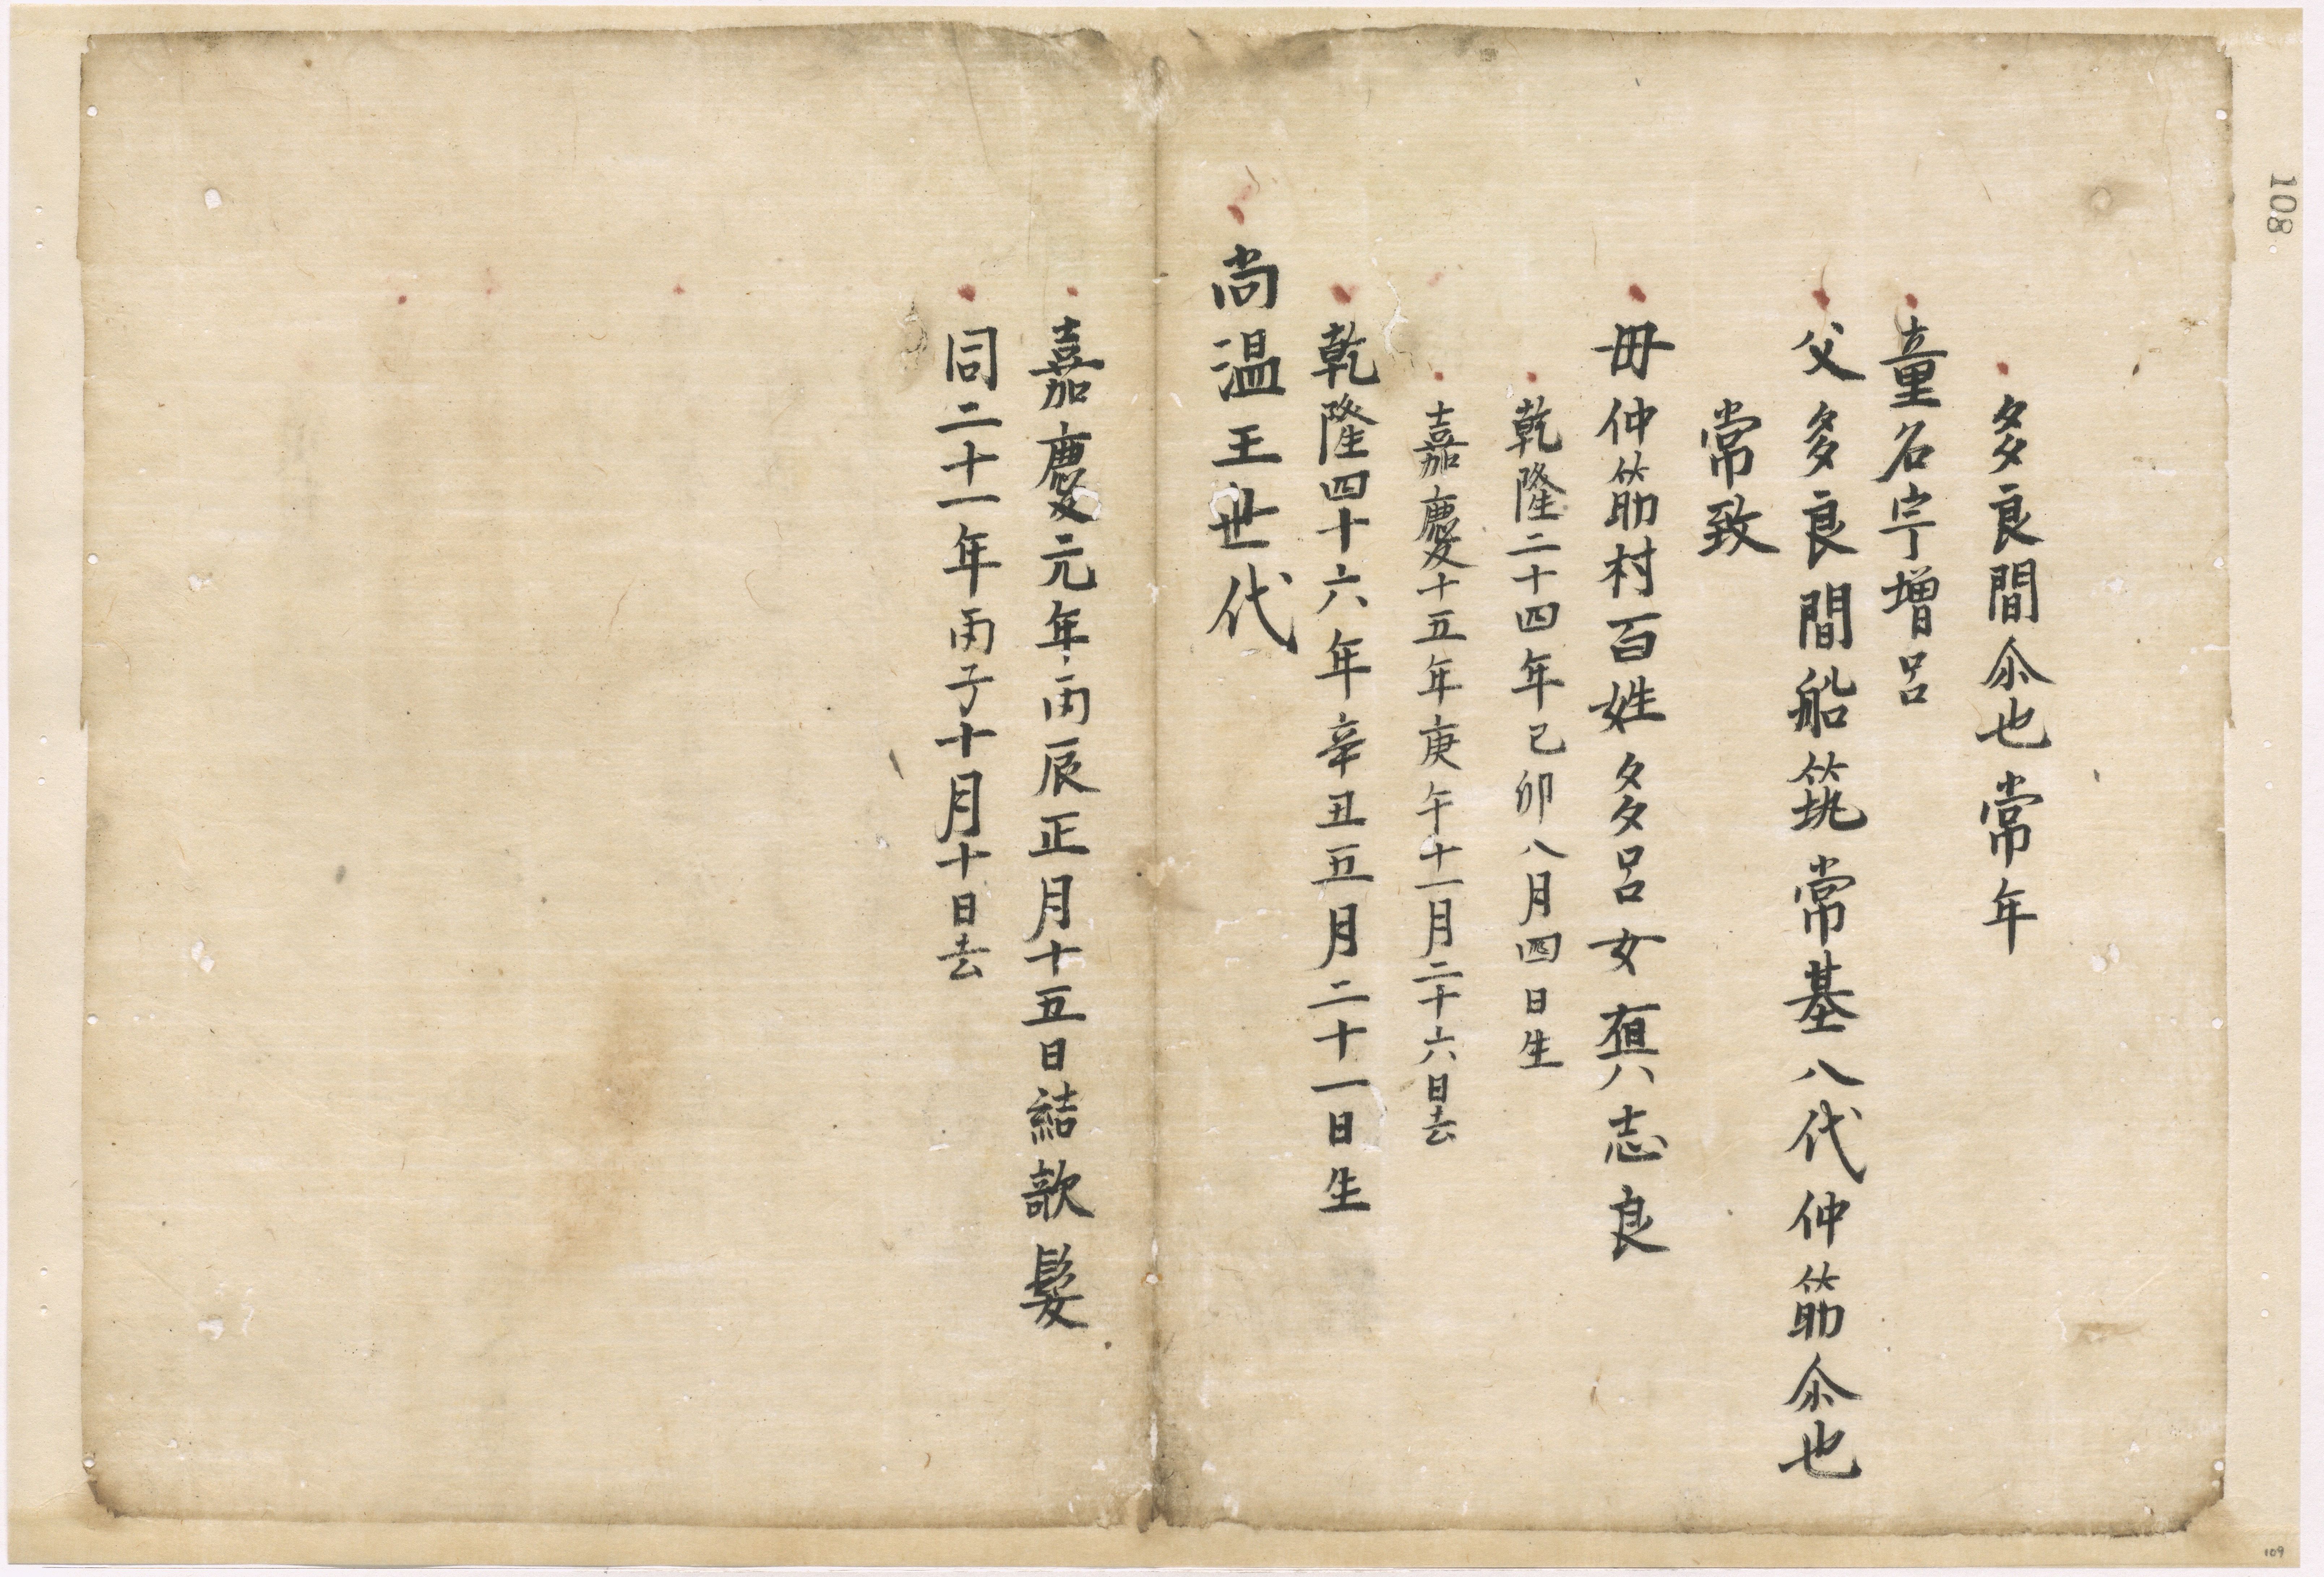 108
多良間尒也常年
童名宇增呂
父多良間船筑常基八代仲筋尒也
常致
毋仲筋村百姓多呂女真志良
乾隆二十四年己卯八月四日生
嘉慶十五年庚午十一月二十六日去
乾隆四十六年辛丑五月二十一日生
尚温王世代
嘉慶元年丙辰正月十五日結欹髮
同二十一年丙子十月十日去
109